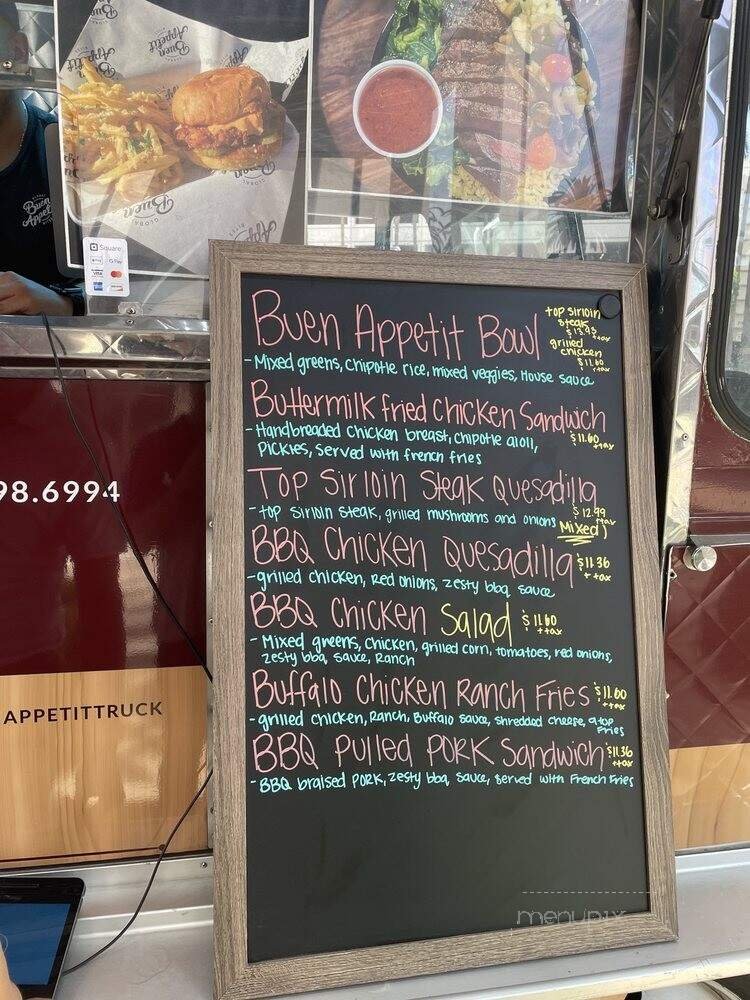 Buen
Appetit
Buen
Appetit
Buen
GLOBAL
Square
Pay
G Pay
VISA
98.6994
APPETITTRUCK
Buen Appetit Bowl
top sirloin
steak
$13.95
+tax
grilled
chicken
$11.60
+tax
-Mixed greens, chipotle rice, mixed veggies, House sauce
Buttermilk fried Chicken Sandwich
$11.60
+tax
-Handbreaded Chicken breast, chipotle aioli,
Pickles, served with french fries
Top Sirloin Steak Quesadilla
$12.99
+tax
-top sirloin steak, grilled mushrooms and onions
Mixed)
BBQ Chicken Quesadilla
$11.36
+tax
-grilled chicken, Red onions, zesty bbq sauce
BBQ Chicken Salad
$11.60
+tax
-Mixed greens, chicken, grilled corn, tomatoes, red onions,
zesty bbq, sauce, Ranch
Buffalo Chicken Ranch Fries
$11.60
+tax
-grilled chicken, Ranch, Buffalo sauce, shredded cheese, atop
Fries
BBQ Pulled Pork Sandwich
$11.36
+tax
-BBQ braised pork, zesty bbq, sauce, served with French Fries
menupix